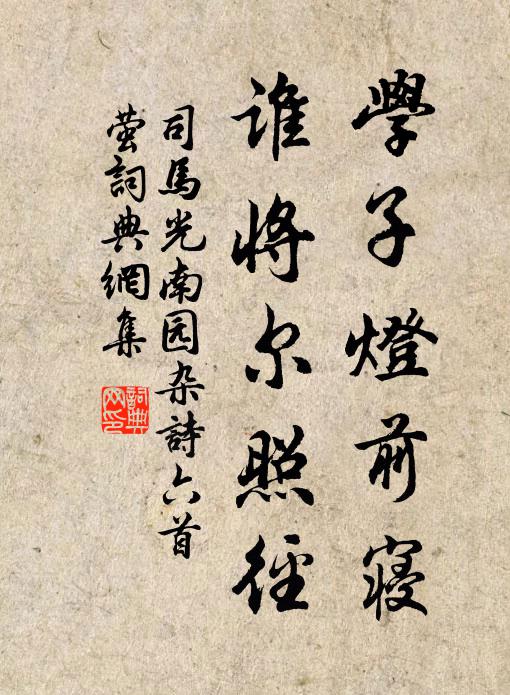 學子燈前寢
誰將尔照徑
司馬光南园杂詩六首
螢詞典網集
詞典
网印